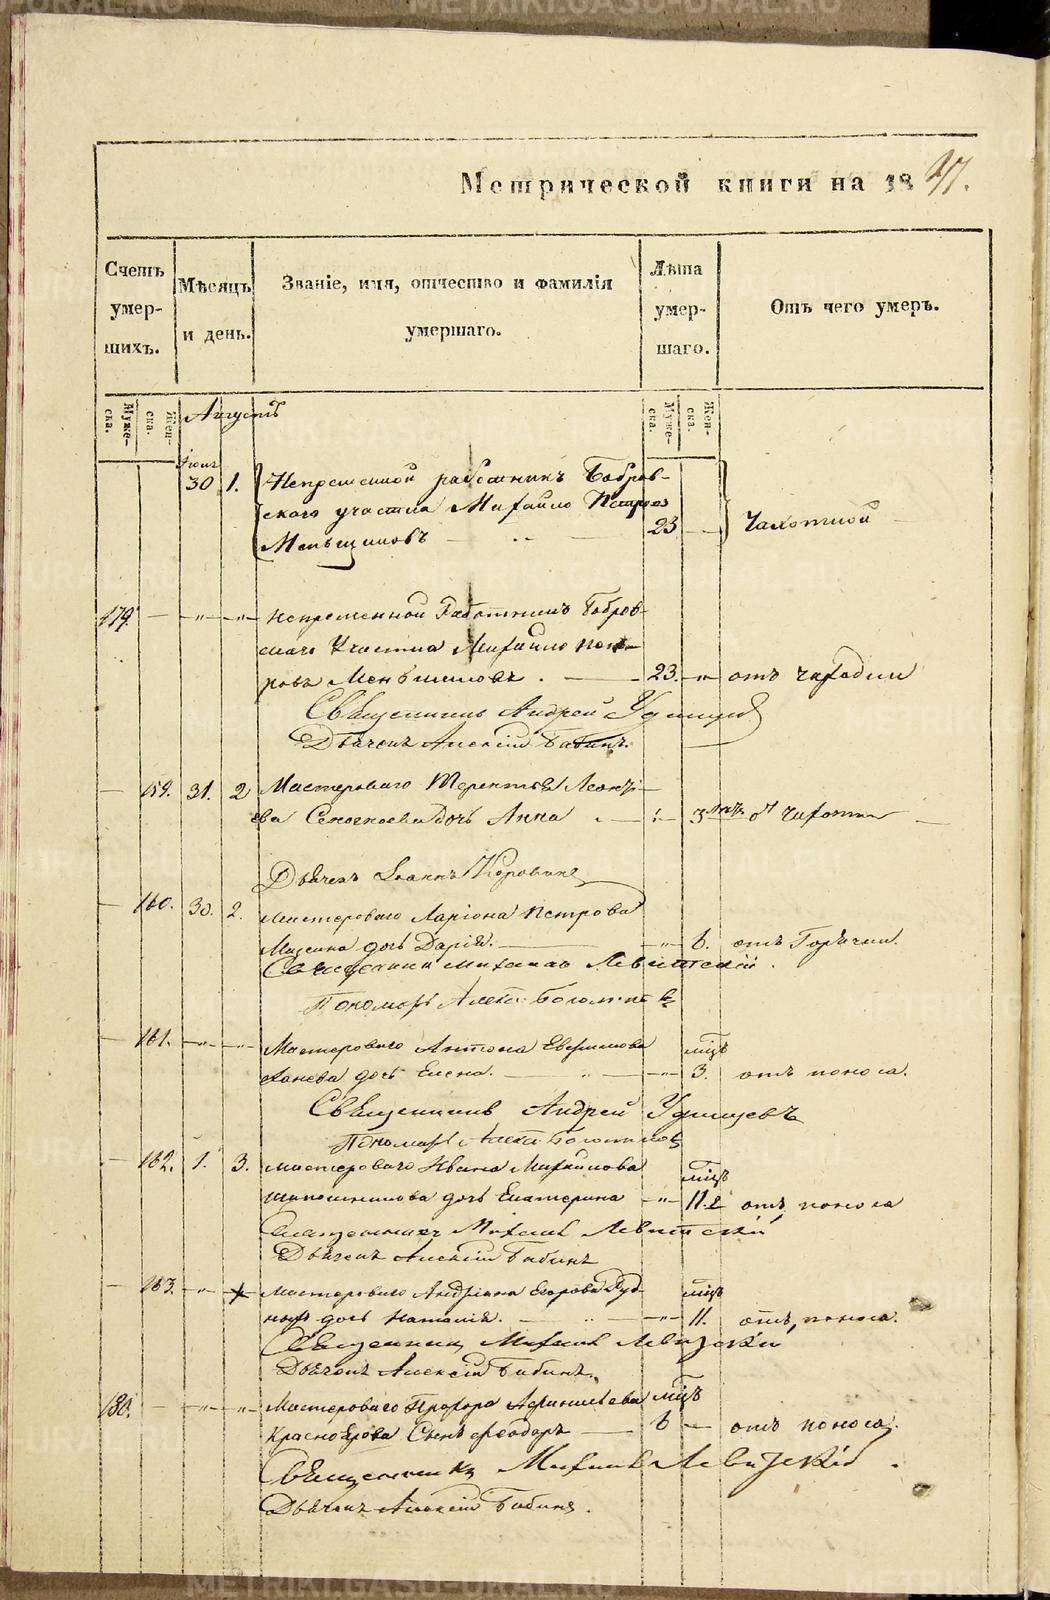 Метрической книги на 18
Счетъ умер-шихъ.
Мѣсяцъ и день.
Званіе, имя, отчество и фамилія умершаго.
Лѣта умер-шаго.
Отъ чего умеръ.
Муже-ска.
Жен-ска.
Августъ
Муже-ска.
Жен-ска.
30 1. Непременной работникъ Бобров-
скаго участка Михайло Петровъ 23 Чахоткой
Меньщиковъ
179. — " " Непременной Работникъ Бобров-
скаго Участка Михайло Пет-
ровъ Меньшиковъ. 23. " отъ чаходки
Священникъ Андрей Удинцевъ
Дьячекъ Алексій Бабинъ.
— 159. 31. 2 Мастероваго Терентья Леонть-
ева дочь Анна 3 от чахотки
Дьячекъ Іоаннъ Коровинъ
— 160. 30. 2. Мастероваго Ларіона Петрова
дочь Дарія. " 6. отъ Горячки.
Священникъ Михаилъ Левитскій.
Пономарь
— 161. " " Мастероваго Антона
дочь Елена. " мцъ 3. отъ поноса.
Священникъ Андрей Удинцевъ
Пономарь
— 162. 1. 3. Мастероваго Ивана Михайлова
Шапошникова дочь Екатерина " мцъ 11. отъ поноса
Священникъ Михаилъ Левитскій
Дьячекъ Алексій Бабинъ
— 163. " Мастероваго Андріана Егорова
дочь Наталія. " мцъ 11. отъ поноса.
Священникъ Михаилъ Левитскій
Дьячекъ Алексій Бабинъ.
180. — " " Мастероваго Прохора мцъ
Красноярова Сынъ Феодоръ 6 — отъ поноса.
Священникъ Михаилъ Левитскій.
Дьячекъ Алексій Бабинъ.
METRIKI.GASO-URAL.RU